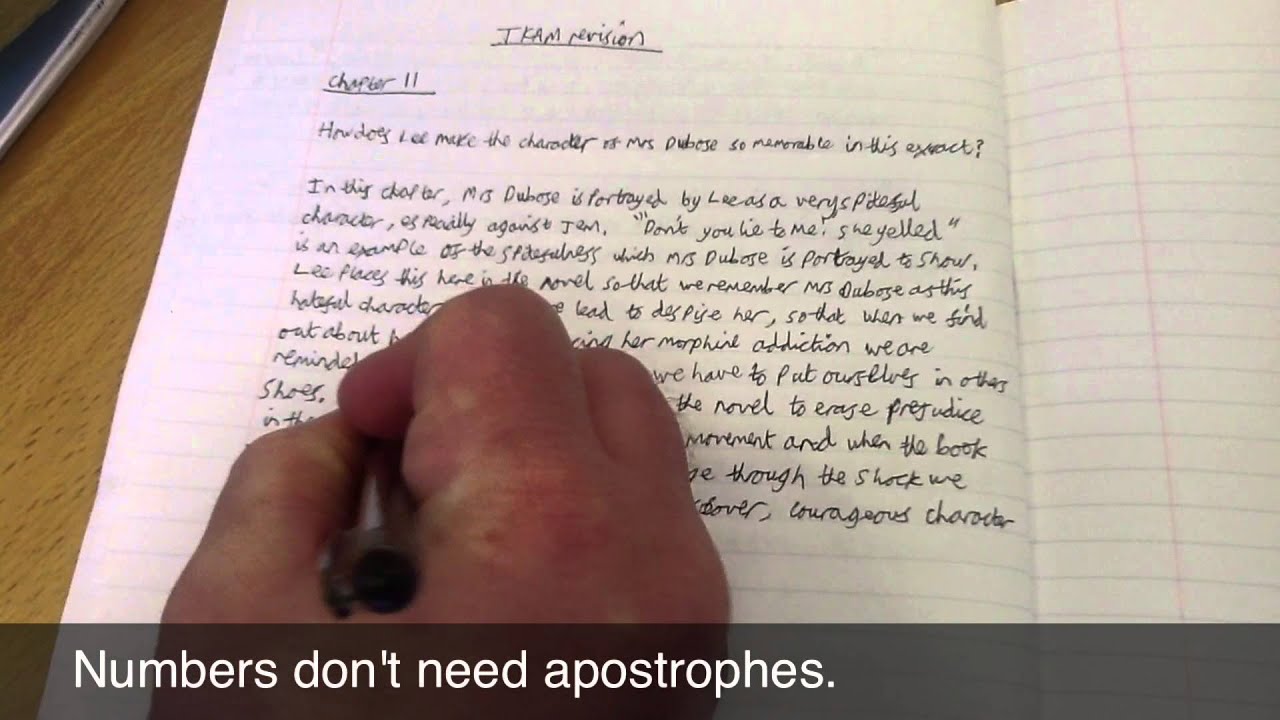 TKAM revision
Chapter 11
How does Lee make the character of Mrs Dubose so memorable in this extract?
In this chapter, Mrs Dubose is portrayed by Lee as a very spiteful
character, especially against Jem. "'Don't you lie to me!' she yelled"
is an example of the spitefulness which Mrs Dubose is portrayed to show.
Lee places this here in the novel so that we remember Mrs Dubose as this
hateful character lead to despise her, so that when we find
out about her morphine addiction we are
reminded we have to put ourselves in others
shoes. the novel to erase prejudice
in the movement and when the book
through the shock we
courageous character
Numbers don't need apostrophes.